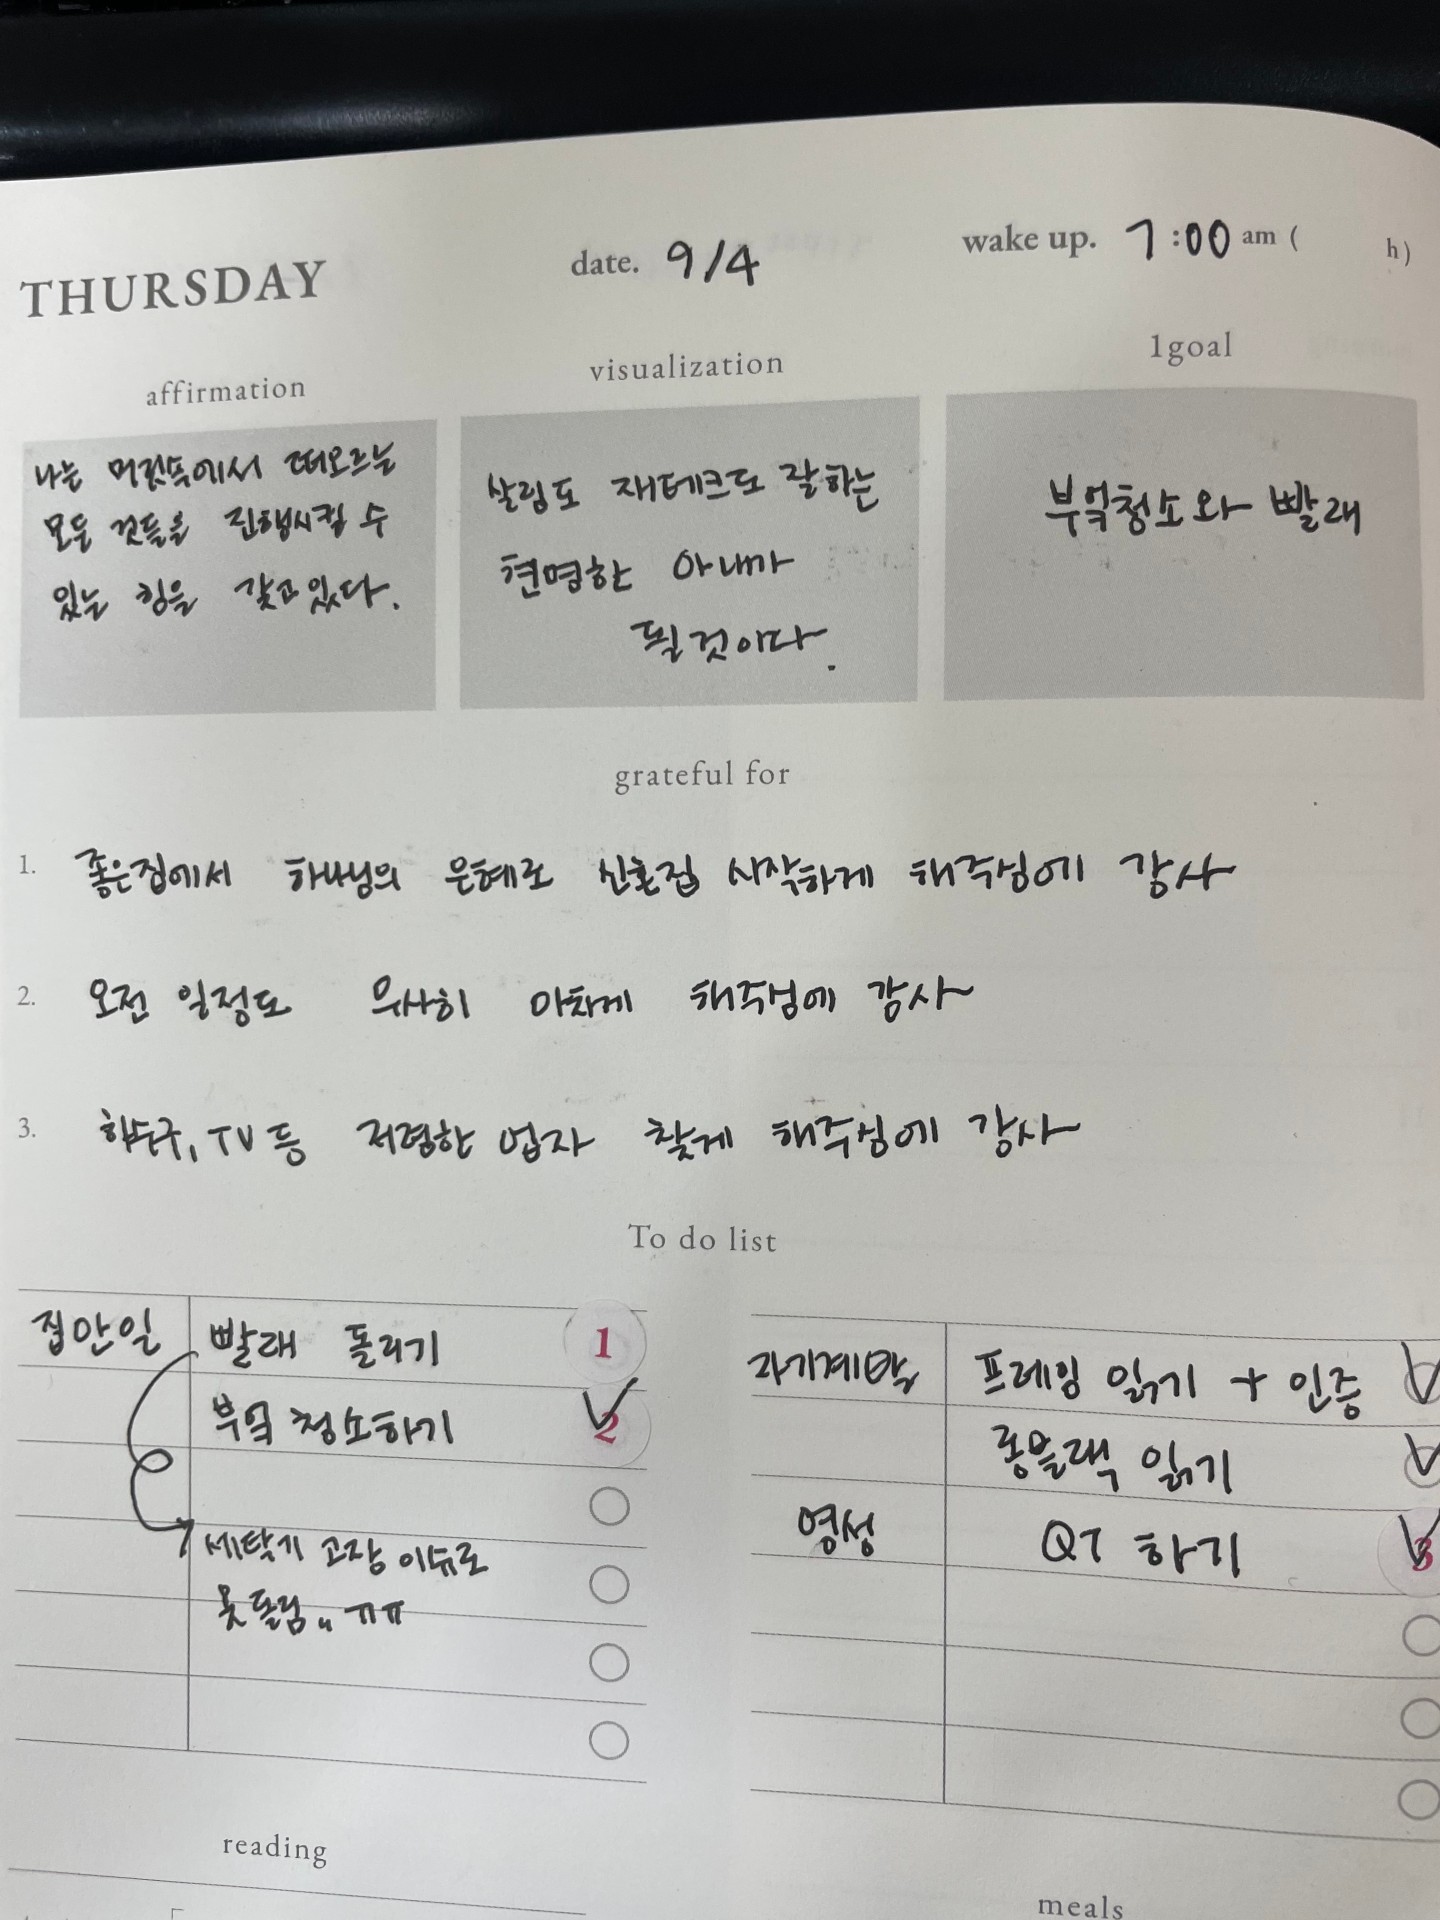 THURSDAY
date. 9/4
wake up. 7:00 am ( h)
affirmation
나는 머릿속에서 떠오르는
모든 것들을 진행시킬 수
있는 힘을 갖고있다.
visualization
살림도 재테크도 잘하는
현명한 아내가
될것이다.
1goal
부엌청소와 빨래
grateful for
1. 좋은집에서 하나님의 은혜로 신혼집 시작하게 해주심에 감사
2. 오전 일정도 무사히 마치게 해주심에 감사
3. 하수구, TV 등 저렴한 업자 찾게 해주심에 감사
To do list
집안일 빨래 돌리기 1
부엌 청소하기 2
세탁기 고장 이슈로
못 돌림.. ㅠㅠ
자기계발 프레임 읽기 + 인증
롱블랙 읽기
영성 QT 하기 3
reading
meals